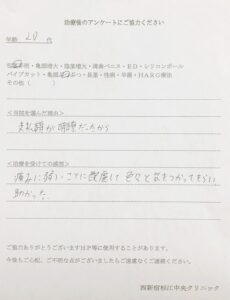 治療後のアンケートにご協力ください
年齢 20 代
包茎手術・亀頭増大・陰茎増大・清潔ペニス・ED・シリコンボール
パイプカット・亀頭ぶつぶつ・長茎・性病・早漏・HARG療法
その他（　　　）
<当院を選んだ理由>
支払額が明瞭だったから
<治療を受けての感想>
痛みに弱いことに配慮して色々と気をつかってもらい
助かった。
ご協力ありがとうございますHP等に使用することがあります。
今後もご心配、ご不明な点がございましたらご遠慮なくご連絡ください。
西新宿杉江中央クリニック